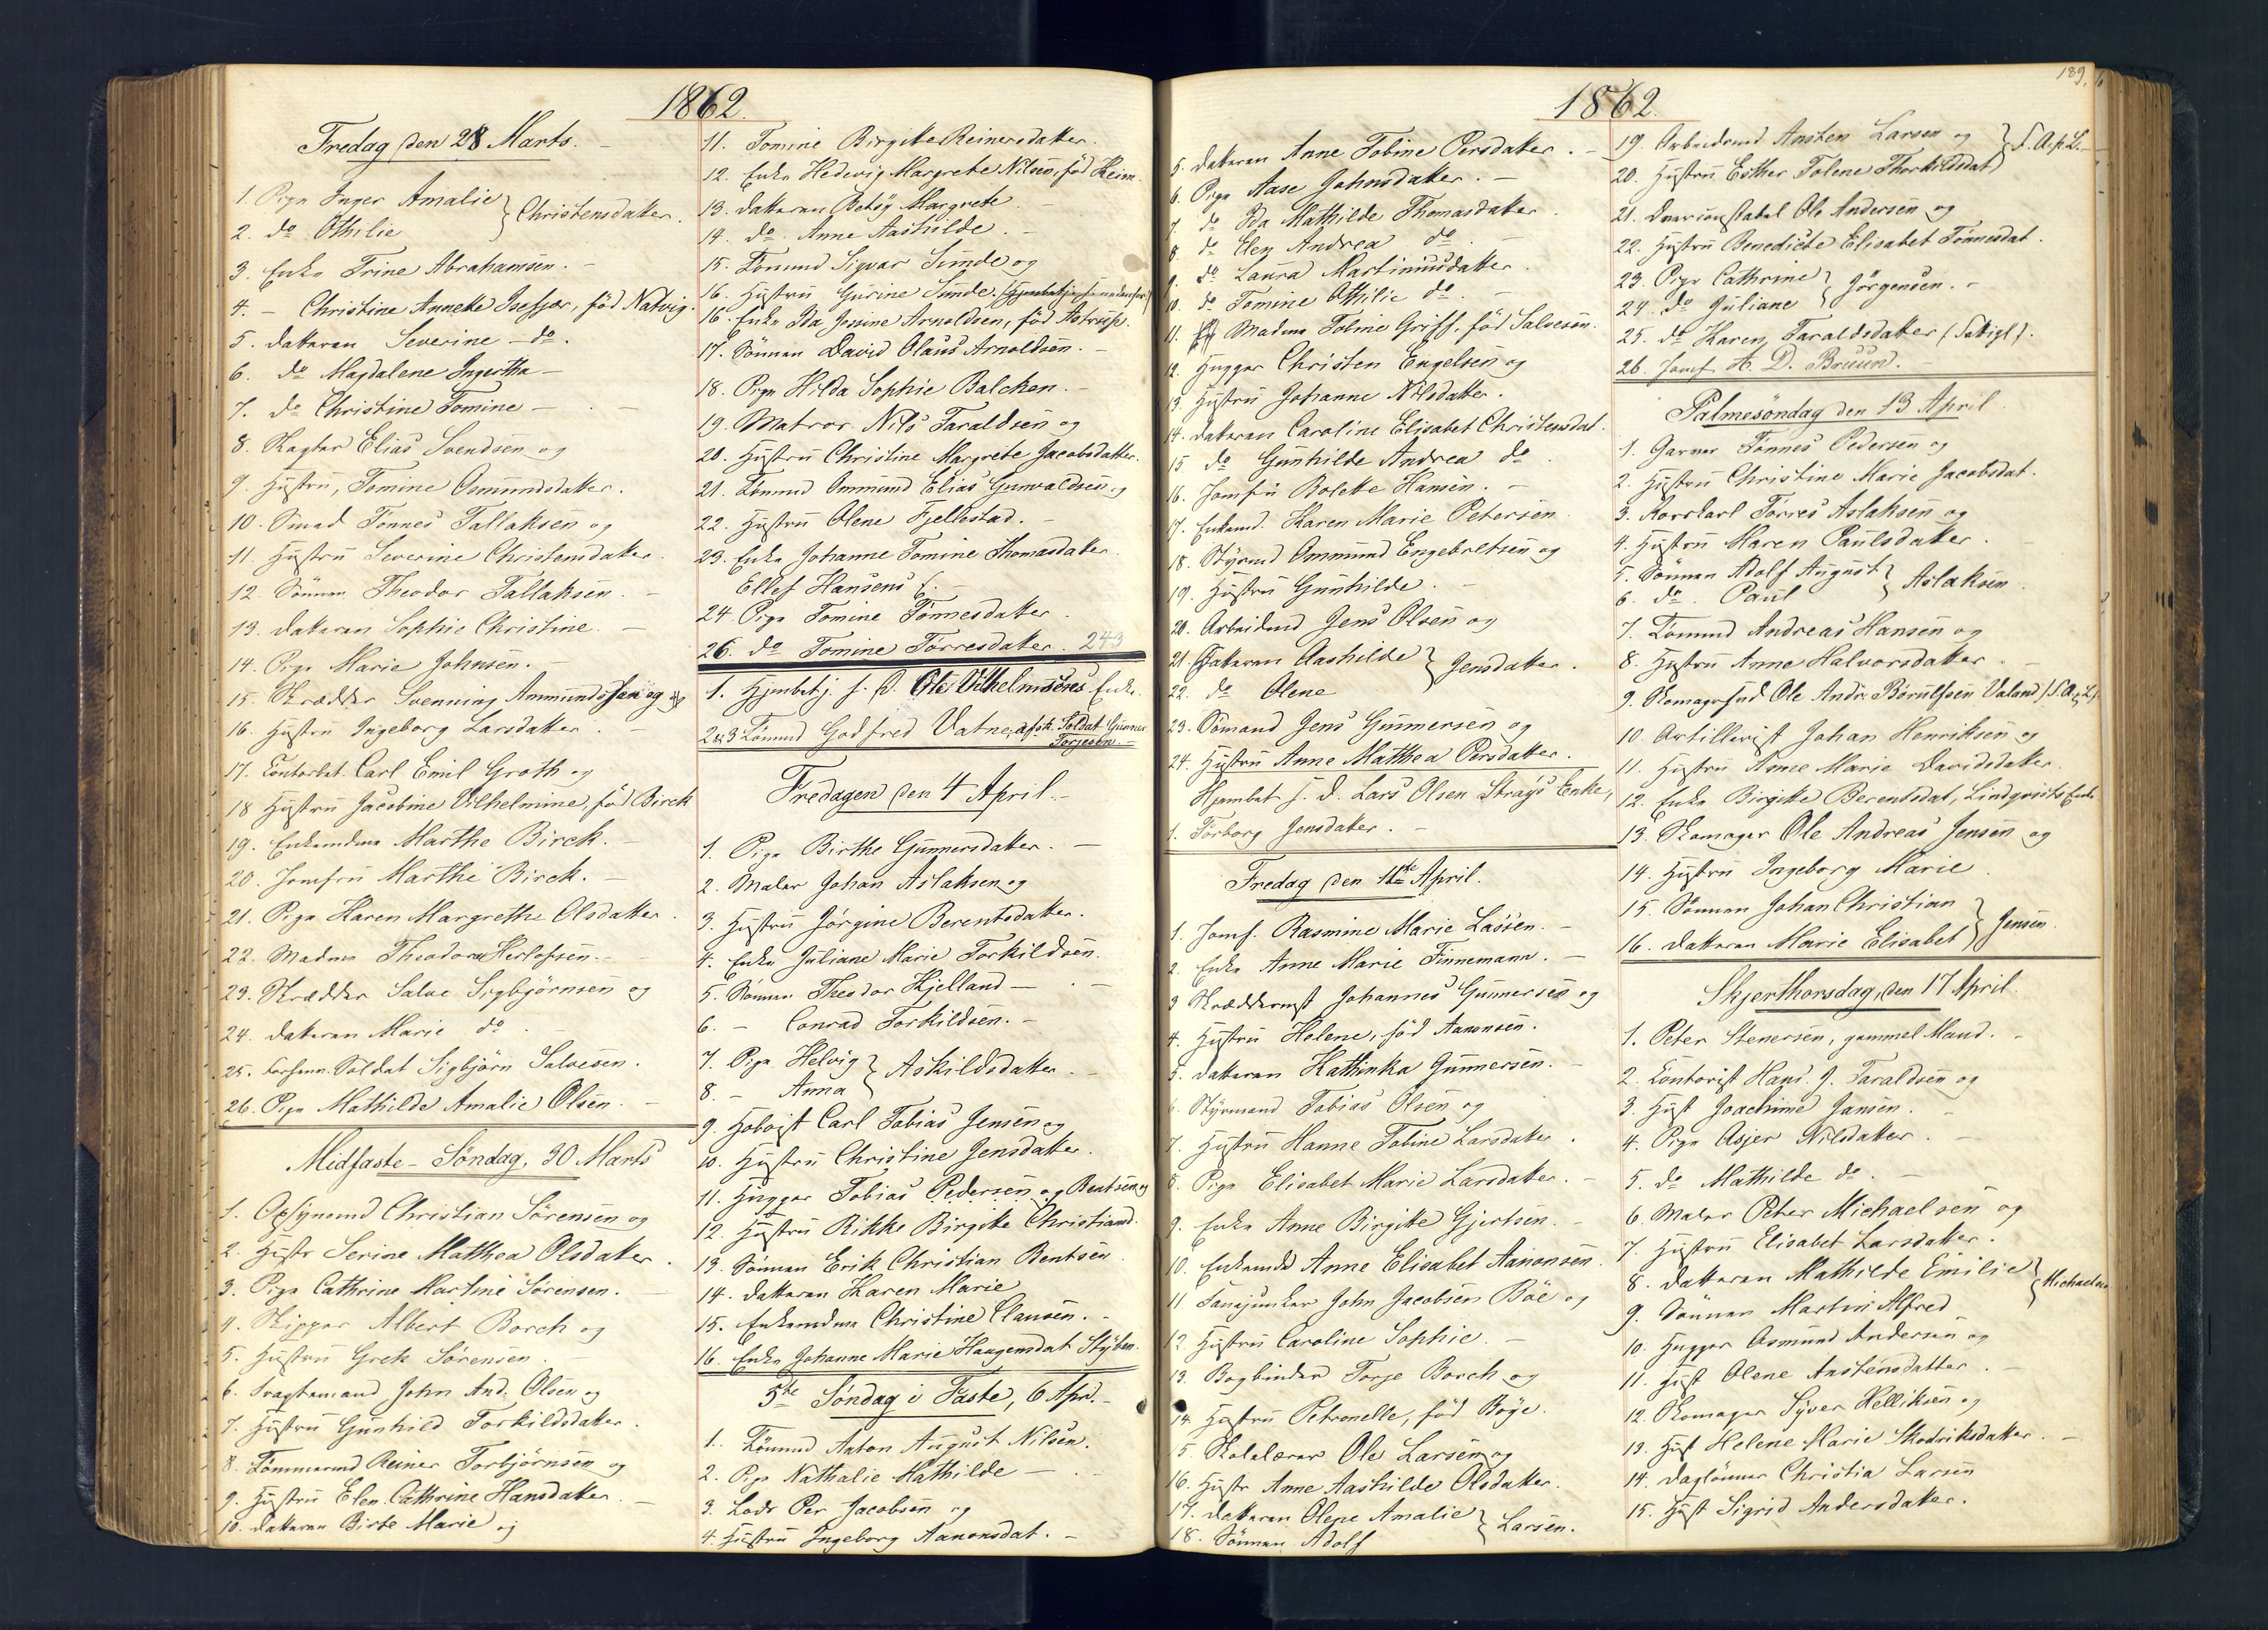 1862.
Fredag den 28 Marts.
1. Pige Inger Amalie } Christensdatter.
2. do Othilie
3. Enke Trine Abrahamsen.
4. - Christine Anneke Isefjær, fød Natvig.
5. datteren Severine - do.
6. do Magdalene Ingertha -
7. do Christine Tomine -
8. Elias Svendsen og
9. Hustru, Tomine Osmundsdatter.
10. Smed Tønnes Tallaksen og
11. Hustru Severine Christensdatter.
12. Sønnen Theodor Tallaksen.
13. datteren Sophie Christine.
14. Pige Marie Johnsen.
15. Skrædder Svenning Ammundsen og
16. Hustru Ingeborg Larsdatter.
17. Contorbet. Carl Emil Groth og
18 Hustru Jacobine Vilhelmine, fød Birck
19. Enkemdme Marthe Birck.
20. Jomfru Marthe Birck.
21. Pige Karen Margrethe Olsdatter.
22. Madme Theodora Herlofsen.
23. Skrædder Salve Sigbjørnsen og
24. datteren Marie do
25. Soldat Sigbjørn Salvesen.
26. Pige Mathilde Amalie Olsen.
Midfaste-Søndag, 30 Marts
1. Opsynsmd Christian Sørensen og
2. Hustr Serine Matthea Olsdatter.
3. Pige Cathrine Martine Sørensen.
4. Skipper Albert Borch og
5. Hustru Grete Sørensen.
6. Fragtemand John And. Olsen og
7. Hustru Gunhild Torkildsdatter.
8. Tømmermd Reiner Torbjørnsen og
9. Hustru Elen Cathrine Hansdatter.
10. datteren Birte Marie og
11. Tomine Birgitte Reinersdatter.
12. Enke Hedevig Margrete Nilsen, fød Heim.
13. datteren Betsy Margrete
14. do. Anne Aashilde.
15. Sømnd Sigvar Sunde og
16. Hustru Gurine Sunde.
16. Enke Ida Josine Arnoldsen, fød Astrup.
17. Sønnen David Olaus Arnoldsen.
18. Pige Hilda Sophie Balchen.
19. Matros Nils Taraldsen og
20. Hustru Christine Margrete Jacobsdatter.
21. Sømnd Ommund Elias Gunvaldsen og
22. Hustru Olene Fjellestad.
23. Enke Johanne Tomine Thomasdatter
Ellef Hansens E.
24. Pige Tomine Tønnesdatter.
26. do Tomine Torresdatter. 243
1. Hjmbetj. s. D. Ole Vilhelmsens Enke.
2&3 Sømnd Godfred Vatne, afsk. Soldat Gunner
Torjesen.
Fredagen den 4 April.
1. Pige Birthe Gunnersdatter.
2. Maler Johan Aslaksen og
3. Hustru Jørgine Berentsdatter.
4. Enke Juliane Marie Torkildsen.
5. Sønnen Theodor Kjelland
6. - Conrad Torkildsen.
7. Pige Helvig } Askildsdatter.
8. - Anna
9. Hoboist Carl Tobias Jensen og
10. Hustru Christine Jensdatter.
11. Hugger Tobias Pedersen og Bentsen og
12. Hustru Rikke Birgitte Christiansd.
13. Sønnen Erik Christian Bentsen
14. datteren Karen Marie
15. Enkemdme Christine Clausen.
16. Enke Johanne Marie Haagensdat Styben.
5te Søndag i Faste, 6 Apr.
1. Sømnd Anton August Nilsen.
2. Pige Nathalie Mathilde -
3. Lods Per Jacobsen og
4. Hustru Ingeborg Aanonsdat.
1862.
189.
5. datteren Anne Tobine Persdatter.
6. Pige Aase Johnsdatter.
7. do Ida Mathilde Thomasdatter
8. do Elen Andrea do
9. do Laura Martiniusdatter
10. do Tomine Othilie do
11. Madme Toline Griff, fød Salvesen.
12. Hugger Christen Engelsen og
13. Hustru Johanne Nilsdatter.
14. datteren Caroline Elisabet Christensdat.
15 do Gunhilde Andrea do
16. Jomfru Bolette Hansen.
17. Enkemd. Karen Marie Petersen
18. Styrmd Ommund Engebretsen og
19. Hustru Gunhilde.
20. Arbeidsmd Jens Olsen og
21. datteren Aashilde } Jensdatter.
22. do Olene
23. Sømand Jens Gunnersen og
24. Hustru Anne Matthea Persdatter.
Hjembet. s. D. Lars Olsen Strays Enke,
1. Torborg Jensdatter.
Fredag den 11te April.
1. Jomf. Rasmine Marie Lassen.
2. Enke Anne Marie Finnemann.
3 Skræddermst Johannes Gunnersen og
4. Hustru Helene, fød Aanonsen.
5. datteren Kathinka Gunnersen.
6. Styrmand Tobias Olsen og
7. Hustru Hanne Tobine Larsdatter.
8. Pige Elisabet Marie Larsdatter.
9. Enke Anne Birgitte Gjertsen.
10. Enkemdd Anne Elisabet Aanonsen.
11 Fanejunker John Jacobsen Bøe og
12. Hustru Caroline Sophie.
13. Bogbinder Torje Borch og
14. Hustru Petronelle, fød Bøye.
15. Skolelærer Ole Larsen og
16. Hustr Anne Aashilde Olsdatter.
17. datteren Olene Amalie } Larsen.
18. Sønnen Adolf
19. Arbeidsmd Ansten Larsen og } S. A. p. L.
20. Hustru Esther Tolene Thorkildsdat
21. Ole Andersen og
22. Hustru Benedicte Elisabet Tønnesdat.
23. Pige Cathrine } Jørgensen.
24. do Juliane
25. do Karen Taraldsdatter
26. Jomf. A. D. Bruun.
Palmesøndag den 13 April
1. Garver Tønnes Pedersen og
2. Hustru Christine Marie Jacobsdat.
3. Torres Aslaksen og
4. Hustru Maren Paulsdatter.
5. Sønnen Adolf August } Aslaksen.
6. do. Paul
7. Sømnd Andreas Hansen og
8. Hustru Anne Halvorsdatter.
9. Skomagersvd Ole Andr. Børulfsen Valand (S. A. p. L.)
10. Artillerist Johan Henriksen og
11. Hustru Anne Marie Davidsdatter.
12. Enke Birgitte Berentsdat, Lindqvists Enke
13. Skomager Ole Andreas Jensen og
14. Hustru Ingeborg Marie
15. Sønnen Johan Christian } Jensen.
16. datteren Marie Elisabet
Skjerthorsdag, den 17 April.
1. Peter Stenersen, gammel Mand.
2. Contorist Hans J. Taraldsen og
3. Hust Joachime Jansen.
4. Pige Asjer Nilsdatter.
5. do Mathilde do
6. Maler Peter Michaelsen og
7. Hustru Elisabet Larsdatter.
8. datteren Mathilde Emilie } Michaelsen
9. Sønnen Martin Alfred
10. Hugger Osmund Andersen og
11. Hust Olene Anstensdatter.
12. Skomager Syver Helliksen og
13. Hust Helene Marie Thodriksdatter.
14. Daglønner Christia Larsen
15. Hust Sigrid Andersdatter.